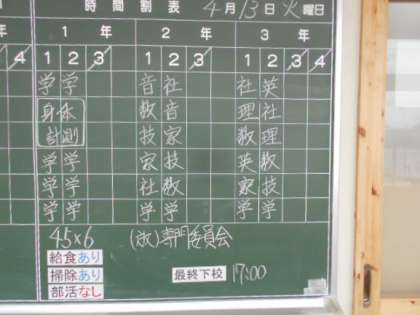 時間割表 4月13日火曜日
1年 2年 3年
4 1 2 3 1 2 3 1 2 3 4
学 学 音 社 社 英
身体 数 音 理 社
計測 技 家 数 理
学 学 家 技 英 数
学 学 社 数 家 技
学 学 学 学 学 学
45×6 (放)専門委員会
給食あり
掃除あり 最終下校 17:00
部活なし